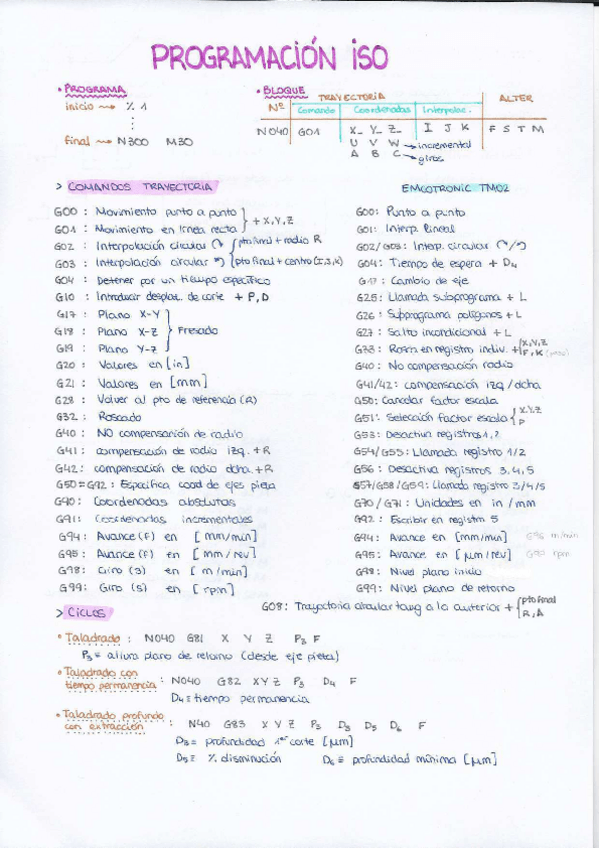 PROGRAMACIÓN ISO
• PROGRAMA
inicio → % 1
⋮
final → N300 M30
• BLOQUE
TRAYECTORIA ALTER
Nº Comando Coordenadas Interpolac.
N040 G01 X_ Y_ Z_ I J K F S T M
U V W → incremental
A B C → giros
> COMANDOS TRAYECTORIA
G00 : Movimiento punto a punto } + X,Y,Z
G01 : Movimiento en línea recta
G02 : Interpolación circular ↷ { pto final + radio R
G03 : Interpolación circular ↶ { pto final + centro (I,J,K)
G04 : Detener por un tiempo específico
G10 : Introducir desplaz. de corte + P,D
G17 : Plano X-Y
G18 : Plano X-Z } Fresado
G19 : Plano Y-Z
G20 : Valores en [in]
G21 : Valores en [mm]
G28 : Volver al pto de referencia (R)
G32 : Roscado
G40 : NO compensación de radio
G41 : compensación de radio izq. + R
G42 : compensación de radio dcha. + R
G50 = G92 : Especifica coord de ejes pieza
G90 : Coordenadas absolutas
G91 : Coordenadas incrementales
G94 : Avance (F) en [mm/min]
G95 : Avance (F) en [mm/rev]
G98 : Giro (S) en [m/min]
G99 : Giro (S) en [rpm]
EMCOTRONIC TM02
G00: Punto a punto
G01: Interp. lineal
G02/G03: Interp. circular ↷/↶
G04: Tiempo de espera + D4
G17 : Cambio de eje
G25: Llamada subprograma + L
G26 : Subprograma polígonos + L
G27 : Salto incondicional + L
G33: Rosca en registro indiv. + { X,Y,Z
F, K
G40: No compensación radio
G41/42: compensación izq/dcha
G50: Cancelar factor escala
G51: Selección factor escala { X,Y,Z
P
G53: Desactiva registros 1,2
G54/G55: Llamada registro 1/2
G56 : Desactiva registros 3,4,5
G57/G58/G59: Llamada registro 3/4/5
G70/G71: Unidades en in/mm
G92 : Escribir en registro 5
G94: Avance en [mm/min] G96 m/min
G95: Avance en [μm/rev] G97 rpm
G98: Nivel plano inicio
G99: Nivel plano de retorno
G08: Trayectoria circular tang a la anterior + { pto final
R, A
> CICLOS
• Taladrado : N040 G81 X Y Z P3 F
P3 ≡ altura plano de retorno (desde eje pieza)
• Taladrado con
tiempo permanencia : N040 G82 X Y Z P3 D4 F
D4 ≡ tiempo permanencia
• Taladrado profundo
con extracción : N40 G83 X Y Z P3 D3 D5 D6 F
D3 ≡ profundidad 1er corte [μm]
D5 ≡ % disminución D6 ≡ profundidad mínima [μm]